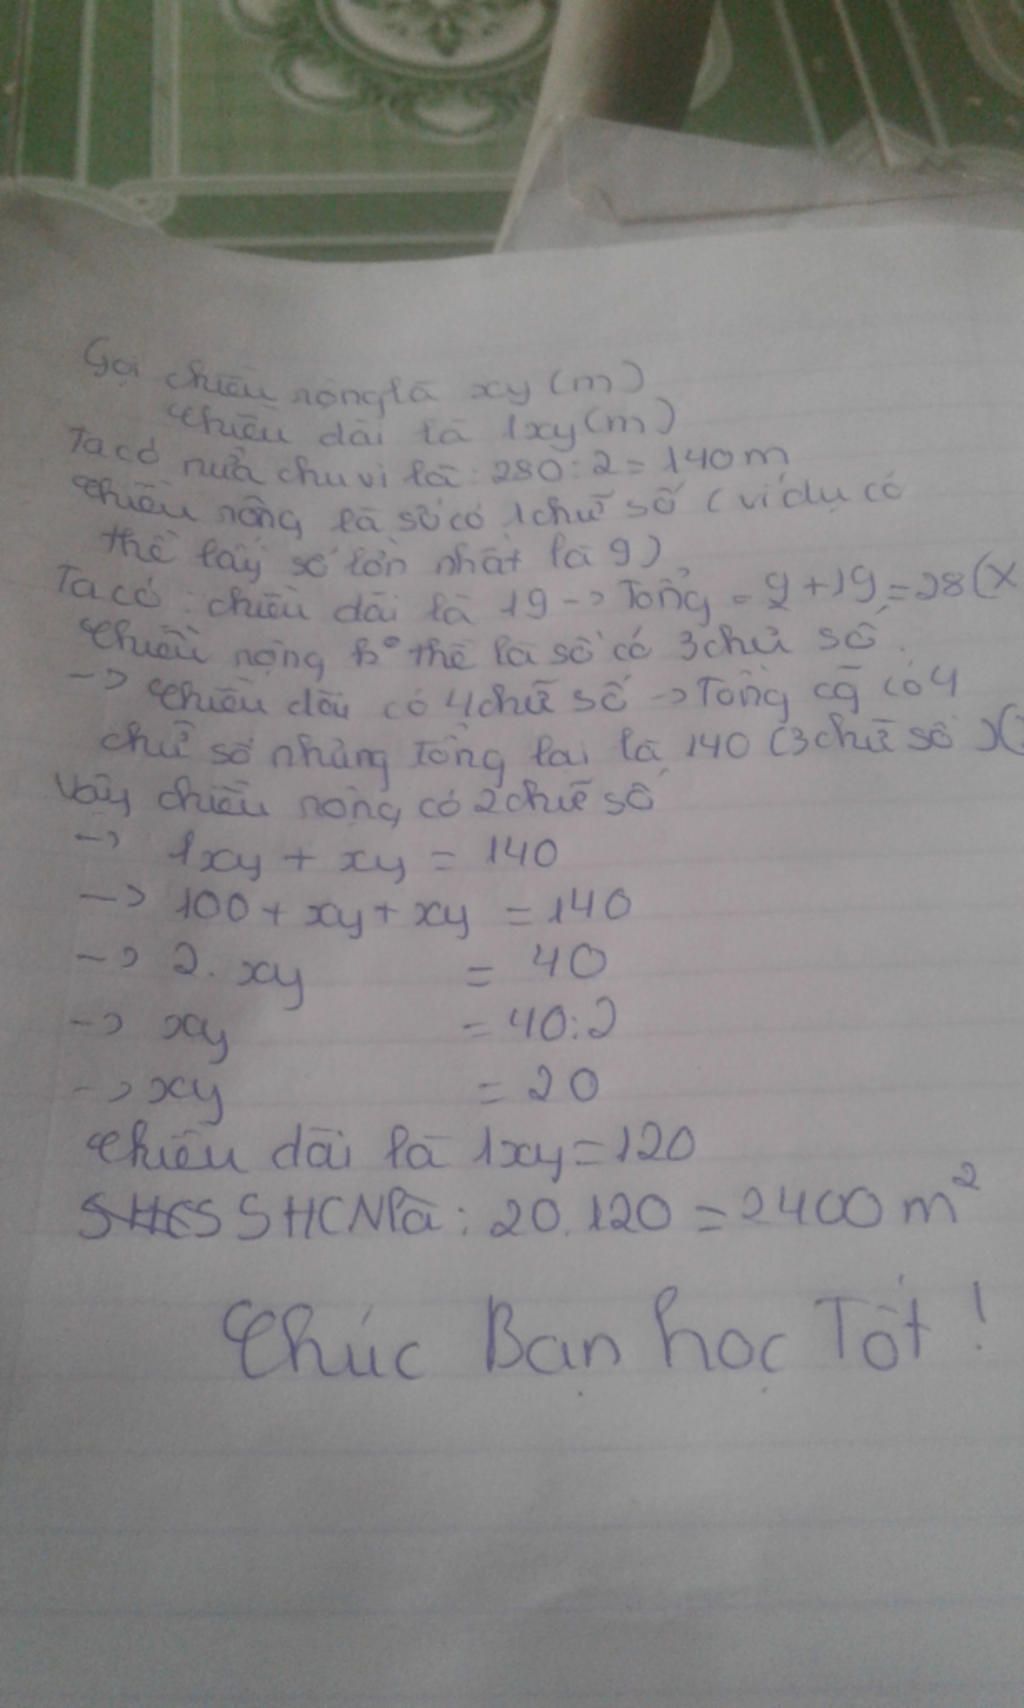 Gọi chiều rộng là xy (m)
chiều dài là 1xy (m)
Ta có nửa chu vi là: 280:2=140m
chiều rộng là số có 1 chữ số (ví dụ có
thể lấy số lớn nhất là 9)
Ta có: chiều dài là 19 -> Tổng = 9+19=28 (X
chiều rộng k° thể là số có 3 chữ số.
-> chiều dài có 4 chữ số -> Tổng cg̃ có 4
chữ số nhưng tổng lại là 140 (3 chữ số) (
Vậy chiều rộng có 2 chữ số
-> 1xy + xy = 140
-> 100 + xy + xy = 140
-> 2. xy = 40
-> xy = 40:2
-> xy = 20
chiều dài là 1xy = 120
SHCN là: 20.120 = 2400 m²
Chúc Bạn học Tốt !